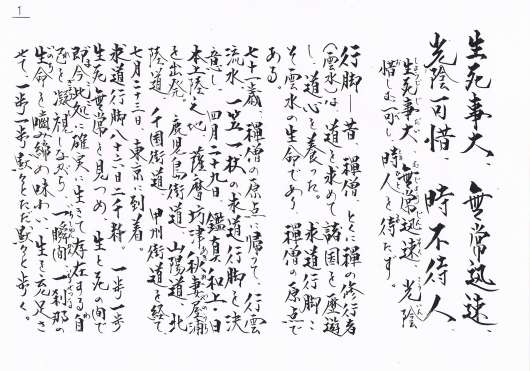 1
生死事大、無常迅速、
光陰可惜、時不待人、
生死事大、無常迅速、光陰
惜しむ可し、時人を待たず。
行脚―昔、禅僧、とくに禅の修行者
(雲水)は、道を求めて諸国を歴遊
し、道心を養った。求道行脚こ
そ雲水の生命であり、禅僧の原点で
ある。
七十一歳、禅僧の原点に帰って、行雲
流水、一笠一杖の求道行脚を決
意し、四月二十九日、鑑真和上、日
本上陸之地、薩摩坊津秋妻屋浦
を出発、鹿児島街道、山陽道、北
陸道、千国街道、甲州街道を経て、
七月二十三日、東京に到着。
求道行脚八十六日二千粁。一歩一歩
生死無常を見つめ、生と死の間で
即今此処に確実に生きて存在する自
己を凝視しながら、一瞬間一刹那の
生命を噛み締め味わい、生を充足さ
せて、一歩一歩黙々とただ黙々と歩く。